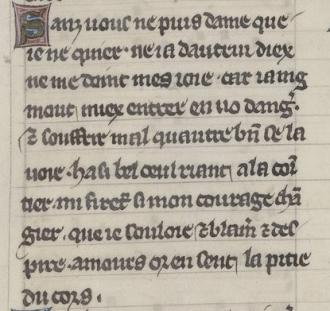 Sanz uous ne puis dame que
ie ne quier. ne ia dautrui diex
ne me doint mes ioie. car iaing
mout miex entrer en uo dang̃.
⁊ souffrir mal quautre bñ se la
uoie. ha si bel oeul riant, a la coĩ
tier. mi firent si mon courage chã
gier. que ie souloie ⁊ blam̃ ⁊ des
pire. amours or en sent, la pitie
du cors.